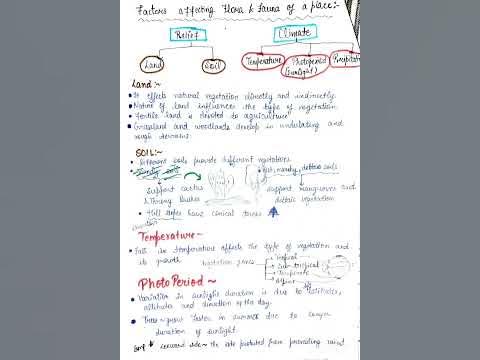 Factors affecting Flora & fauna of a place:-
Relief
Climate
Land
Soil
Temperature
Photoperiod
(sunlight)
Precipitation
Land:-
It effects natural vegetation directly and indirectly.
Nature of land influences the type of vegetation.
Fertile land is devoted to agriculture
Grassland and woodlands develop in undulating and
rough terrains.
SOIL:-
Different soils provide different vegetation.
Sandy soils
marshy, deltaic soils
support cactus
& thorny bushes
support mangroves and
deltaic vegetation
Hill slopes have conical trees
Temperature~
Fall in temperature affects the type of vegetation and
its growth
vegetation zones
Tropical
Sub-tropical
Temperate
Alpine
Photo Period~
Variation in sunlight duration is due to latitudes,
altitudes and duration of the day.
Trees grow faster in summer due to longer
duration of sunlight.
Leeward side~ The side protected from prevailing wind